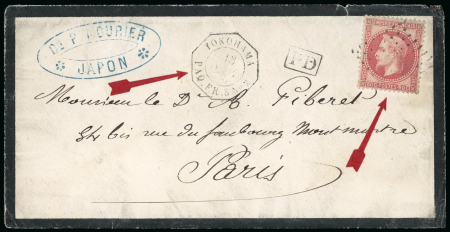 Dr P. MOURIER
JAPON
YOKOHAMA
PAQ. FR.
PD
Monsieur le Dr A. Piberet
bis rue du faubourg Montmartre
Paris